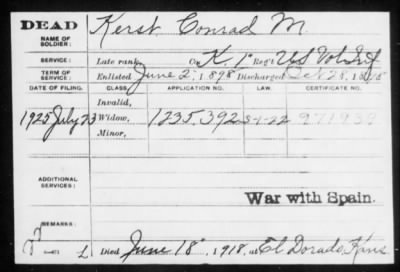 DEAD
NAME OF SOLDIER: Kerst Conrad M.
SERVICE: Late rank, Co K. 1" Reg't US Vol Inf
TERM OF SERVICE: Enlisted June 2, 1898 Discharged Oct 28, 1898
DATE OF FILING. CLASS. APPLICATION NO. LAW. CERTIFICATE NO.
Invalid,
1925 July 23 Widow, 1235.392 S-1-22 971939
Minor,
ADDITIONAL SERVICES:
War with Spain.
REMARKS:
Died June 18", 1918, at El Dorado, Kans